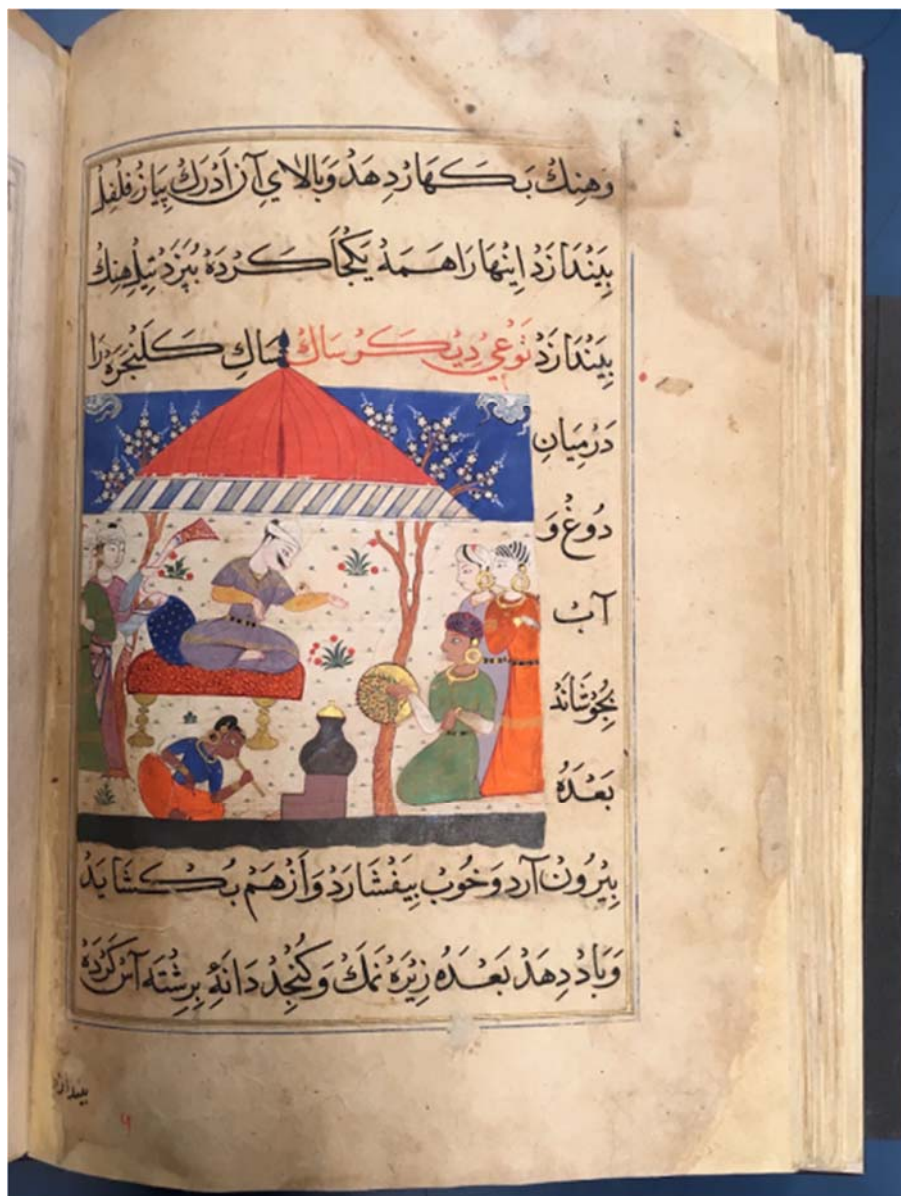 وَهِنك بَكهَار دِهَد وَبالايِ آن اَدرَك پِیَاز فِلفِل
بِیَندَازَد اِینهَا رَا هَمَه یَکجَا کَردَه بِپَزَد تِیل هِنك
بِیَندَازَد نَوعیِ دِیکَر سَاك سَاكِ کَلَنجَرَه رَا
دَرمِیَانِ
دُوغ وَ
آب
بِجُوشَانَد
بَعدَهُ
بِیرُون آرَد وَخُوب بِیَفشَارَد وَاَزهَم بُکشَایَد
وَبَاد دِهَد بَعدَهُ زِیرَه نَمَك وَکُنجِد دَانَهٔ بِرِشتَه آس کَردَه
بیندازد